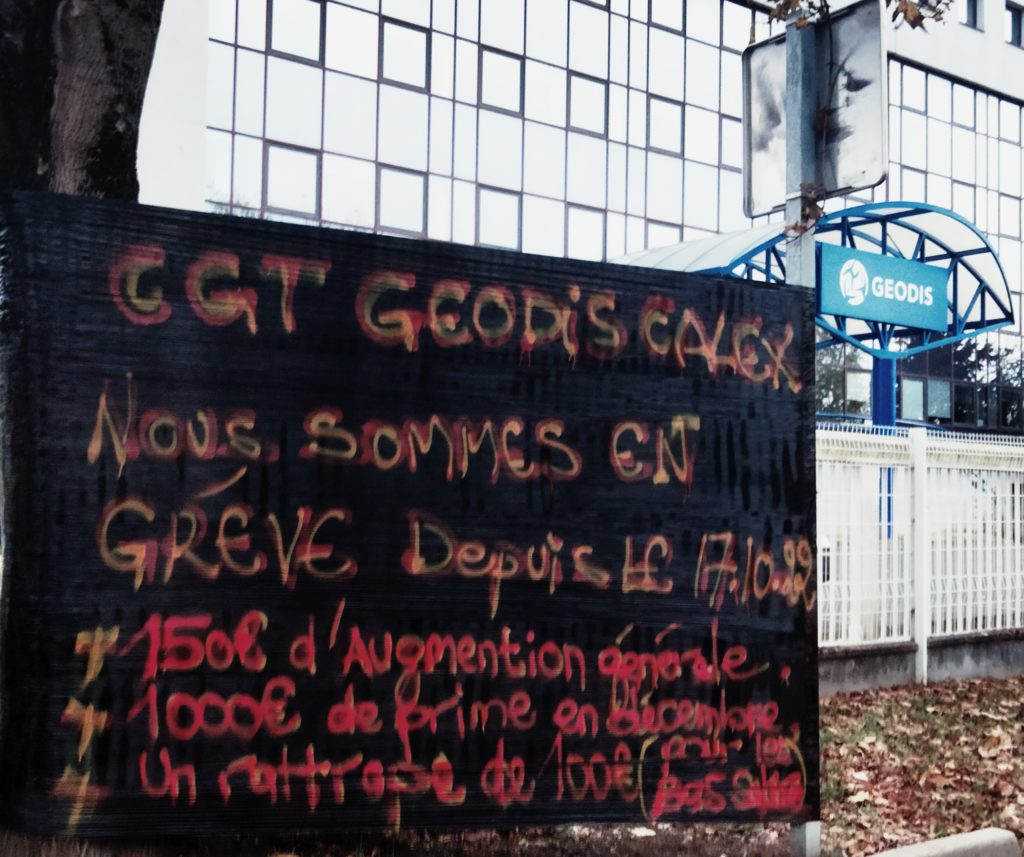 CGT GEODIS CALEX
NOUS SOMMES EN
GRÉVE Depuis LE 17.10.22
+ 150€ d'Augmention générale.
+ 1000€ de prime en décembre.
+ Un rattrape de 100€ (pour les
bas salire)
GEODIS